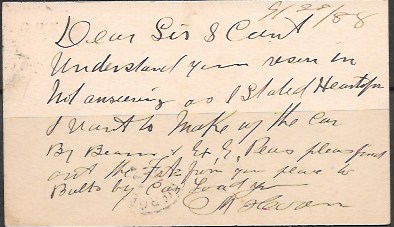 9/28/88
Dear Sir I Can't
Understand your reason in
Not answering as I Stated Heartofore
I Want to Make up the Car
By Beams & pleas find
out the your place to
Bolts by Car Load